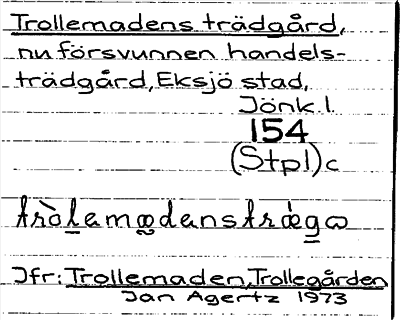 Trollemadens trädgård,
nu försvunnen handels-
trädgård, Eksjö stad,
Jönk.l.
154
(Stpl)c
Jfr: Trollemaden, Trollegården
Jan Agertz 1973